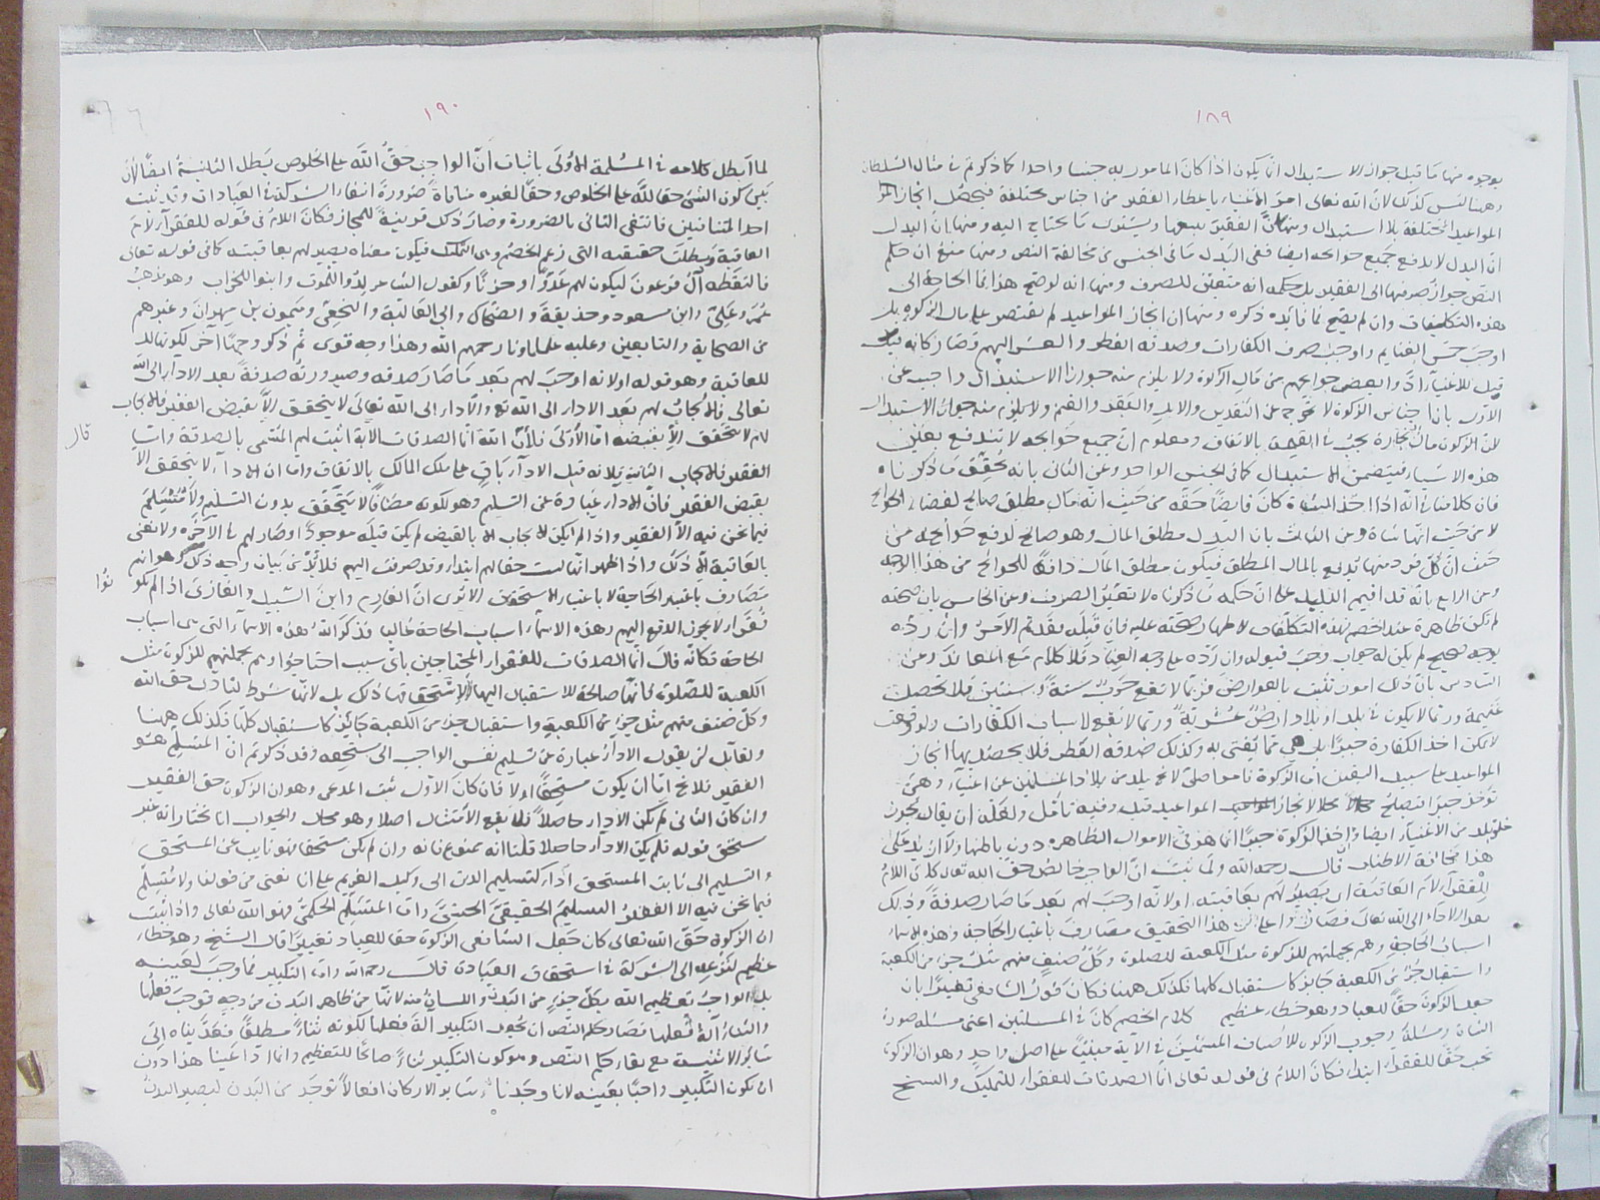 ١٨٩
بوجوه منها ما قيل جواز الاستبدال انما يكون اذا كان المامور به جنسا واحدا كما ذكرتم في مثال السلطان
وههنا ليس كذلك لان الله تعالى امر الاغنياء باعطاء الفقير من اجناس مختلفة فيحصل انجاز
المواعيد المختلفة بلا استبدال ومنها ان الفقير يبيعها ويشتري ما يحتاج اليه ومنها ان البدل
ان البدل لا يدفع جميع حوائجه ايضا ففي البدل ما في الجنس من مخالفة النص ومنها منع ان حكم
النص جواز صرفها الى الفقير بل حكمه انه متعين للصرف ومنها انه لو صح هذا فما الحاجة الى
هذه التكليفات وان لم يصح فما فائدة ذكره ومنها ان انجاز المواعيد لم يقتصر على مال الزكوة بل
اوجب خمس الغنايم واوجب صرف الكفارات وصدقة الفطر والعشر اليهم فصار كانه
قيل للاغنياء ادوا بعض حوائجهم من مال الزكوة ولا يلزم منه جواز الاستبدال واجيب عن
الاول بان اجناس الزكوة لا تخرج عن النقدين والابل والبقر والغنم ولا يلزم منه جواز الاستبدال
لان الزكوة مال تجارة يجب في القيمة بالاتفاق ومعلوم ان جميع حوائجه لا تندفع بعين
هذه الاشياء فيتضمن الاستبدال كما في الجنس الواحد وعن الثاني بانه تحقق ما ذكرناه
فان كلامنا في انه اذا اخذ الشاة كان قابضا حقه من حيث انه مال مطلق صالح لقضاء الحوائج
لا من حيث انها شاة وعن الثالث بان البدل مطلق المال وهو صالح لدفع حوائجه من
حيث ان كل فرد منها يدفع بالمال المطلق فيكون مطلق المال دافعا للحوائج من هذا الوجه
وعن الرابع بانه قد اقيم الدليل على ان حكمه ما ذكرناه لا تعين الصرف وعن الخامس بان صحته
لم تكن ظاهرة عند الخصم فهذه التكلفات لاظهار صحته عليه فان قبله بقدتم الامر وان رده
بوجه صحيح لم يكن له جواب وجب قبوله وان رده على وجه العناد فلا كلام مع المعاند وعن
السادس بان ذلك امور تثبت بالعوارض فربما لا تقع حرب سنة وسنتين فلا تحصل
غنيمة وربما لا يكون في بلد او بلاد ارض عشرية وربما لا يقع لاسباب الكفارات ولو وقعت
لا يمكن اخذ الكفارة جبرا بل هي مما يفتى به وكذلك صدقة الفطر فلا يحصل بها انجاز
المواعيد على سبيل اليقين اما الزكوة فامر اصلي لا يخ بلد من بلاد المسلمين عن اغنياء وهي
تؤخذ جبرا فتصلح محلا لانجاز المواعيد قيل وفيه تامل ولعله ان يقال يجوز
خلو بلد من الاغنياء ايضا واخذ الزكوة جبرا انما هو في الاموال الظاهره دون باطنها ولا ازيد على
هذا مخافة الاطناب قال رحمه الله ولما ثبت ان الواجب خالص حق الله تعالى كان اللام
للفقراء لام العاقبة اي يصير لهم بعاقبته او لانه اوجب لهم بعد ما صار صدقة وذلك
بعد الاداء الى الله تعالى فصاروا على هذا التحقيق مصارف باعتبار الحاجة وهذه الاسماء
اسباب الحاجة وهم بجملتهم للزكوة مثل الكعبة للصلوة وكل صنف منهم مثل جزء من الكعبة
واستقبال جزء من الكعبة جايز كاستقبال كلها فكذلك ههنا فكان قول الشافعي تغييرا بان
جعل الزكوة حقا للعباد وهو خطاء عظيم كلام الخصم كان في المسئلتين اعني مسئلة صورة
الشاة ومسئلة وجوب الزكوة للاصناف المسمين في الاية مبنيا على اصل واحد وهو ان الزكوة
تجب حقا للفقراء ابتداء فكان اللام في قوله تعالى انما الصدقات للفقراء للتمليك والشيخ
١٩٠
لما ابطل كلامه في المسئلة الاولى باثبات ان الواجب حق الله على الخلوص يبطل الثانية ايضا لان
بين كون الشئ حقا لله على الخلوص وحقا لغيره منافاة ضرورة انتفاء الشركة في العبادات وقد ثبت
احد المتنافيين فانتفى الثاني بالضرورة وصار ذلك قرينة للمجاز فكان اللام في قوله للفقراء لام
العاقبة وبطلت حقيقته التي زعم الخصم وهي التملك فيكون معناه يصير لهم بعاقبته كما في قوله تعالى
فالتقطه آل فرعون ليكون لهم عدوا وحزنا وكقول الشاعر لدوا للموت وابنوا للخراب وهو مذهب
عمر وعلي وابن مسعود وحذيفة والضحاك وابي العالية والنخعي وميمون بن مهران وغيرهم
من الصحابة والتابعين وعليه علماؤنا رحمهم الله وهذا وجه قوي ثم ذكر وجها آخر لكونها
للعاقبة وهو قوله او لانه اوجب لهم بعد ما صار صدقه وصيرورته صدقة بعد الاداء الى الله
تعالى فالايجاب لهم بعد الاداء الى الله تع والاداء الى الله تعالى لا يتحقق الا بقبض الفقير فالايجاب
لهم لا يتحقق الا بقبضه اما الاولى فلان الله انما الصدقات الاية اثبت لهم المسمى بالصدقة واثبا
الفقير فالايجاب الثانية فلانه قبل الاداء باق على ملك المالك بالاتفاق واما ان الاداء لا يتحقق الا
بقبض الفقير فان الاداء عبارة عن التسليم وهو لكونه مضافا لا يتحقق بدون التسليم ولا متسلم
فيما نحن فيه الا الفقير واذا لم يكن الايجاب الا بالقبض لم يكن قبله موجودا وصار لهم في الآخره ولا نعني
بالعاقبة الا ذلك واذا ظهر انها ليست حقا لهم ابتداء وقد صرفت اليهم فلا بد من بيان وجه ذلك وهو انهم
مصارف باعتبار الحاجة لا باعتبار الاستحقاق الا ترى ان الغارم وابن السبيل والغازي اذا لم يكو
نوا
فقراء لا يجوز الدفع اليهم وهذه الاسماء اسباب الحاجة غالبا فذكر الله هذه الاسماء التي هي اسباب
الحاجة فكانه قال انما الصدقات للفقراء المحتاجين باي سبب احتاجوا وهم بجملتهم للزكوة مثل
الكعبة للصلوة فانها صالحة للاستقبال اليها لا لاستحقاقها ذلك بل لانها شرط لتادي حق الله
وكل صنف منهم مثل جزء من الكعبة واستقبال جزء من الكعبة جائز كاستقبال كلها فكذلك ههنا
ولقائل ان يقول الاداء عبارة عن تسليم نفس الواجب الى مستحقه وقد ذكرتم ان المتسلم هو
الفقير فلا يخ اما ان يكون مستحقا اولا فان كان الاول ثبت المدعى وهو ان الزكوة حق الفقير
وان كان الثاني لم يكن الاداء حاصلا فلا يقع الامتثال اصلا وهو محال والجواب انا نختار انه غير
مستحق قوله فلم يكن الاداء حاصلا قلنا انه ممنوع فانه وان لم يكن مستحقا فهو نايب عن المستحق
والتسليم الى نائب المستحق اداء كتسليم الدين الى وكيل الغريم على انا نعني من قولنا ولا متسلم
فيما نحن فيه الا الفقير التسليم الحقيقي الحسي واما المتسلم الحكمي فهو الله تعالى واذا ثبت
ان الزكوة حق الله تعالى كان جعل الشافعي الزكوة حقا للعباد تغييرا قال الشيخ وهو خطاء
عظيم لنزعه الى الشركة في استحقاق العبادة قال رحمه الله واما التكبير فما وجب لعينه
بل الواجب تعظيم الله بكل جزء من البدن واللسان منه لانه من ظاهر البدن من وجه فوجب فعلها
والثناء آلة فعلها فصار حكم النص ان يجعل التكبير آلة فعلها لكونه ثناء مطلقا فعديناه الى
سائر الاثنية مع بقاء حكم النص وهو كون التكبير ثناء صالحا للتعظيم وانما ادعينا هذا دون
ان يكون التكبير واجبا بعينه لانا وجدنا سائر الاركان افعالا توجد من البدن ليصير البدن
قال